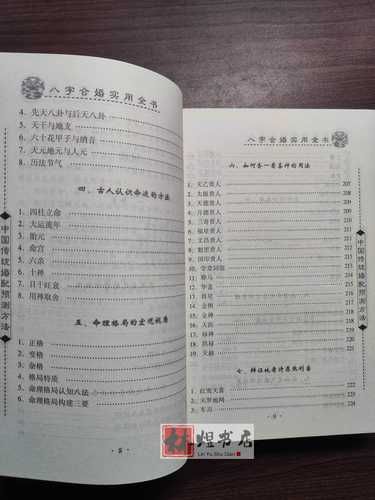 八字合婚实用全书
4. 先天八卦与后天八卦
5. 天干与地支
6. 六十花甲子与纳音
7. 天元地元与人元
8. 历法节气
四、古人认识命运的方法
1. 四柱立命
2. 大运流年
3. 胎元
4. 命宫
5. 六亲
6. 十神
7. 日干旺衰
8. 用神取舍
五、命理格局的宏观视角
1. 正格
2. 变格
3. 杂格
4. 格局特质
5. 命理格局认知八法
6. 命理格局构建三要
中国传统婚配预测方法
八字合婚实用全书
六、如何查一看各神的用法
1. 天乙贵人 207
2. 太极贵人
3. 天德贵人
4. 月德贵人
5. 三奇贵人
6. 福星贵人
7. 文昌贵人
8. 魁罡贵人
9. 国印贵人
10. 学堂词馆
11. 驿马
12. 华盖
13. 将星
14. 金舆
15. 金神
16. 天医
17. 禄神
18. 拱禄
19. 天赦
1. 红鸾天喜 222
2. 天罗地网 223
3. 羊刃 224
中国传统婚配预测方法
林煜书店
Lin Yu Shu Dian